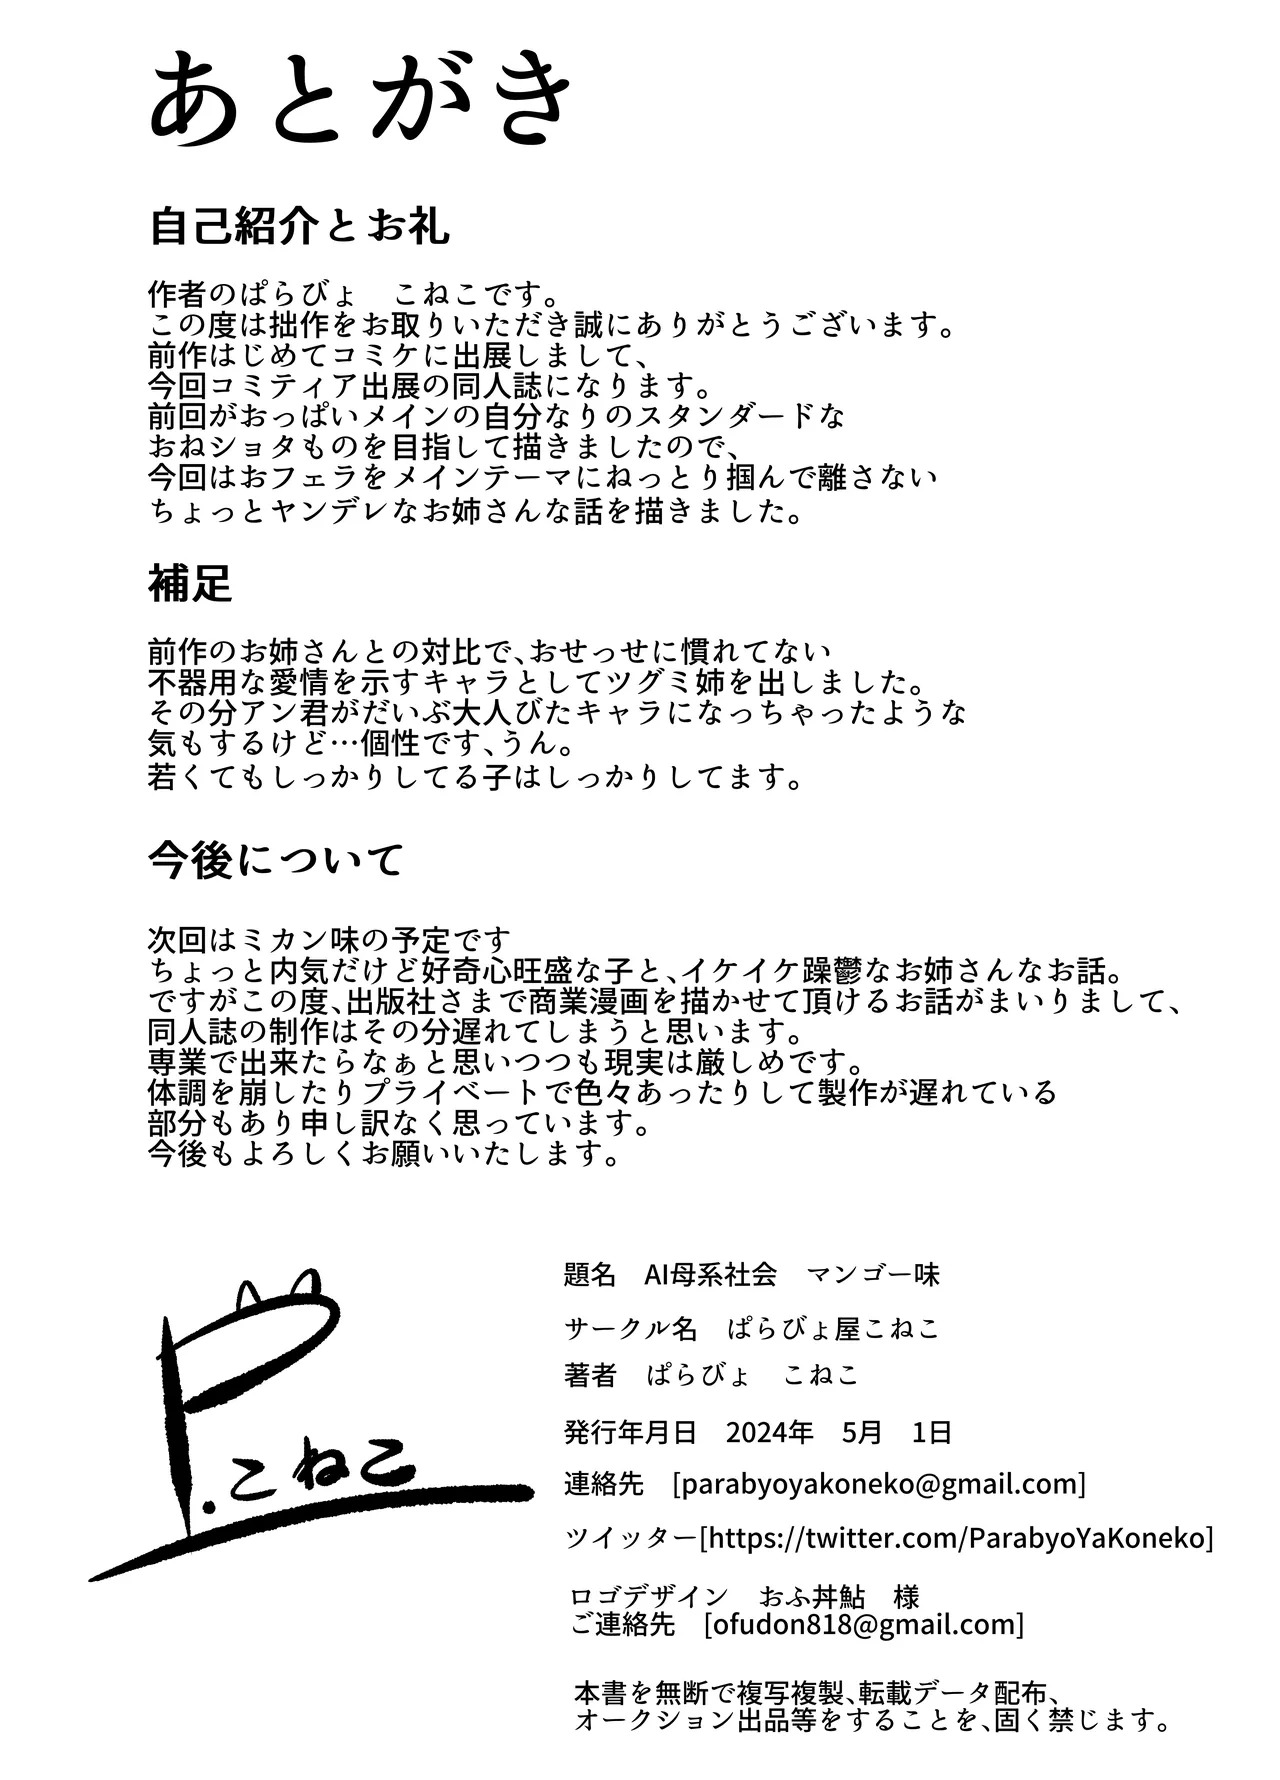 あとがき
自己紹介とお礼
作者のぱらびょ　こねこです。
この度は拙作をお取りいただき誠にありがとうございます。
前作はじめてコミケに出展しまして、
今回コミティア出展の同人誌になります。
前回がおっぱいメインの自分なりのスタンダードな
おねショタものを目指して描きましたので、
今回はおフェラをメインテーマにねっとり掴んで離さない
ちょっとヤンデレなお姉さんな話を描きました。
補足
前作のお姉さんとの対比で、おせっせに慣れてない
不器用な愛情を示すキャラとしてツグミ姉を出しました。
その分アン君がだいぶ大人びたキャラになっちゃったような
気もするけど…個性です、うん。
若くてもしっかりしてる子はしっかりしてます。
今後について
次回はミカン味の予定です
ちょっと内気だけど好奇心旺盛な子と、イケイケ躁鬱なお姉さんなお話。
ですがこの度、出版社さまで商業漫画を描かせて頂けるお話がまいりまして、
同人誌の制作はその分遅れてしまうと思います。
専業で出来たらなぁと思いつつも現実は厳しめです。
体調を崩したりプライベートで色々あったりして製作が遅れている
部分もあり申し訳なく思っています。
今後もよろしくお願いいたします。
P.こねこ
題名　AI母系社会　マンゴー味
サークル名　ぱらびょ屋こねこ
著者　ぱらびょ　こねこ
発行年月日　2024年　5月　1日
連絡先　[parabyoyakoneko@gmail.com]
ツイッター[https://twitter.com/ParabyoYaKoneko]
ロゴデザイン　おふ丼鮎　様
ご連絡先　[ofudon818@gmail.com]
本書を無断で複写複製、転載データ配布、
オークション出品等をすることを、固く禁じます。